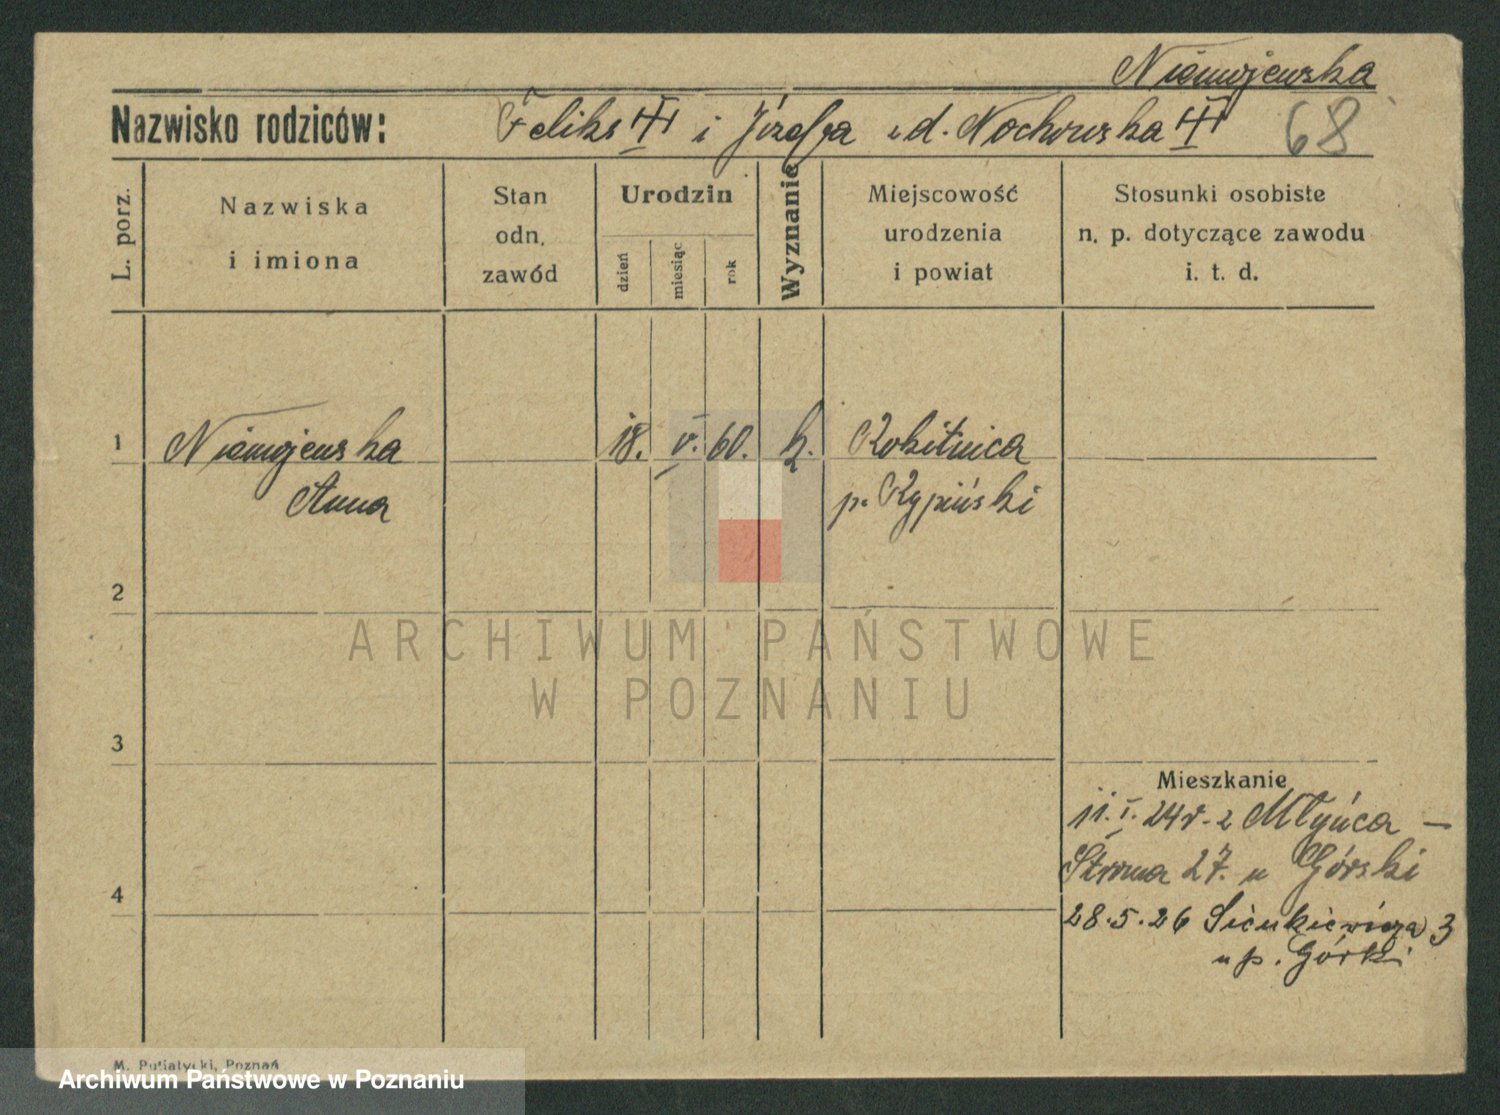 Niemojewska
Nazwisko rodziców: Feliks i Józefa z d. Nochowska 68
L. porz.
Nazwiska
i imiona
Stan
odn.
zawód
Urodzin
dzień
miesiąc
rok
Wyznanie
Miejscowość
urodzenia
i powiat
Stosunki osobiste
n. p. dotyczące zawodu
i. t. d.
1 Niemojewska 18. V. 60. k. Rokitnica
Anna p. Rypiński
2
ARCHIWUM PAŃSTWOWE
W POZNANIU
3
Mieszkanie
11. I. 24 r. z Młyńca —
Stroma 27. u Górski
4
28.5.26 Sienkiewicza 3
u p. Górki
M. Putiatycki, Poznań
Archiwum Państwowe w Poznaniu